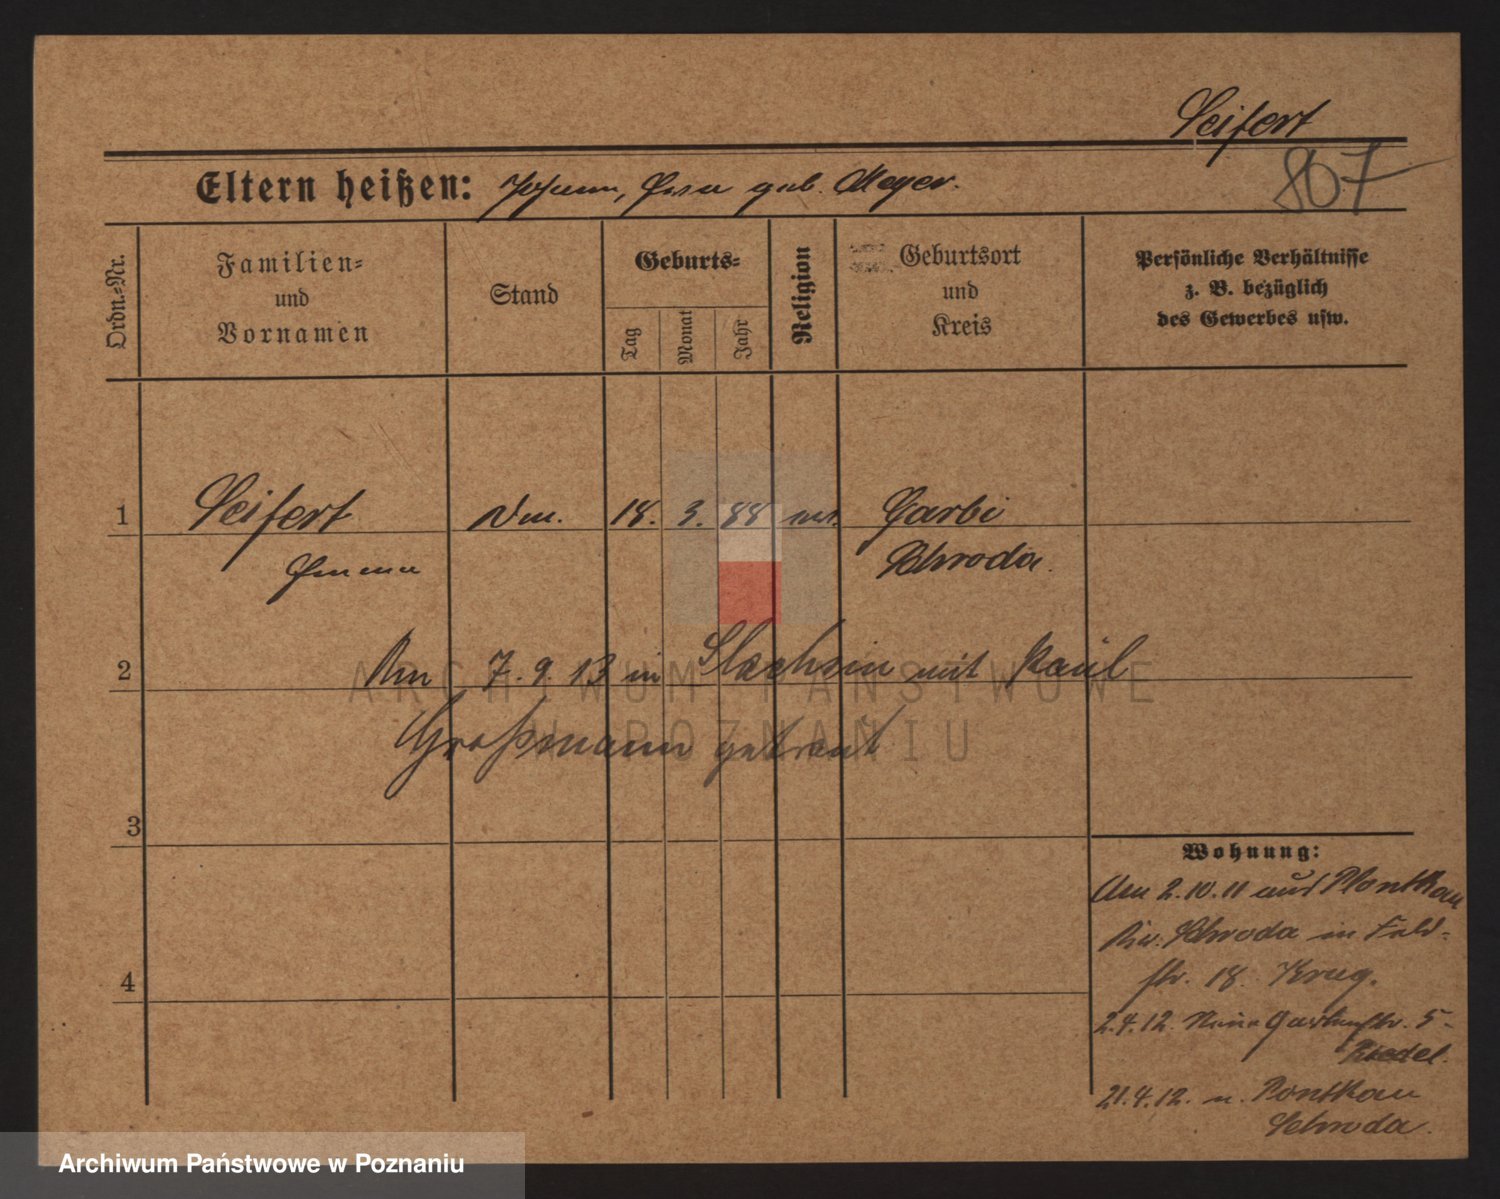 Seifert
807
Eltern heißen: Johann, Ema geb. Meyer.
Ordn.=Nr.
Familien=
und
Vornamen
Stand
Geburts=
Tag
Monat
Jahr
Religion
Geburtsort
und
Kreis
Persönliche Verhältnisse
z. B. bezüglich
des Gewerbes usw.
1 Seifert 18. 3. 88 Garbi
Emma Schroda.
2 Am 7. 9. 13 in mit Paul
Großmann getraut
3
4
Wohnung:
Am 2.10.11 aus Pontkau
Schroda in Feld=
str. 18. Krug.
2.4.12. Neue Gartenstr. 5
Riedel.
21.4.12. n. Pontkau
Schroda.
ARCHIWUM PAŃSTWOWE
W POZNANIU
Archiwum Państwowe w Poznaniu